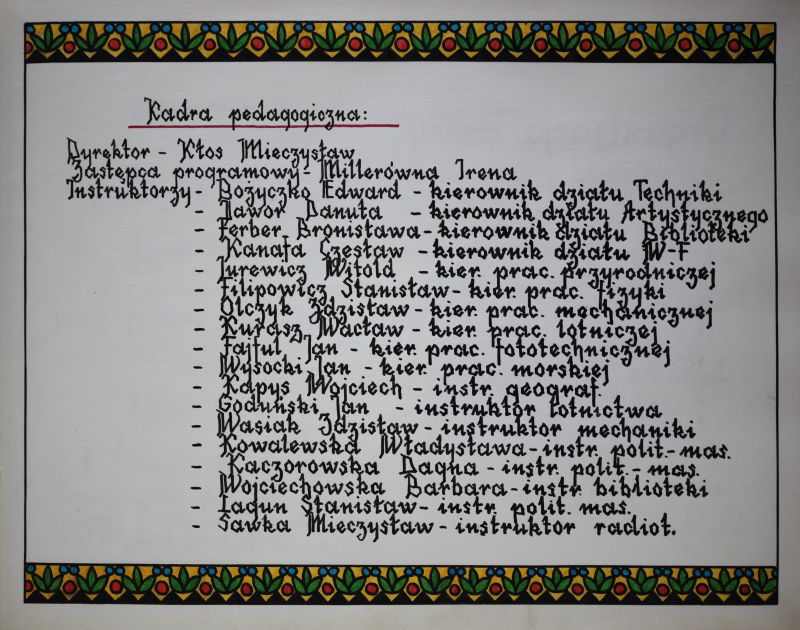 Kadra pedagogiczna:
Dyrektor - Kłos Mieczysław
Zastępca programowy - Millerówna Irena
Instruktorzy - Bożyczko Edward - kierownik działu Techniki
- Jawor Danuta - kierownik działu Artystycznego
- Ferber Bronisława - kierownik działu Biblioteki
- Kanafa Czesław - kierownik działu W-F
- Jurewicz Witold - kier. prac. przyrodniczej
- Filipowicz Stanisław - kier. prac. fizyki
- Olczyk Zdzisław - kier. prac. mechanicznej
- Kurasz Wacław - kier. prac. lotniczej
- Fajful Jan - kier. prac. fototechnicznej
- Wysocki Jan - kier. prac. morskiej
- Kapys Wojciech - instr. geograf.
- Goduński Jan - instruktor lotnictwa
- Wasiak Zdzisław - instruktor mechaniki
- Kowalewska Władysława - instr. polit. - mas.
- Kaczorowska Dagna - instr. polit. - mas.
- Wojciechowska Barbara - instr. biblioteki
- Ładun Stanisław - instr. polit. mas.
- Sawka Mieczysław - instruktor radiot.